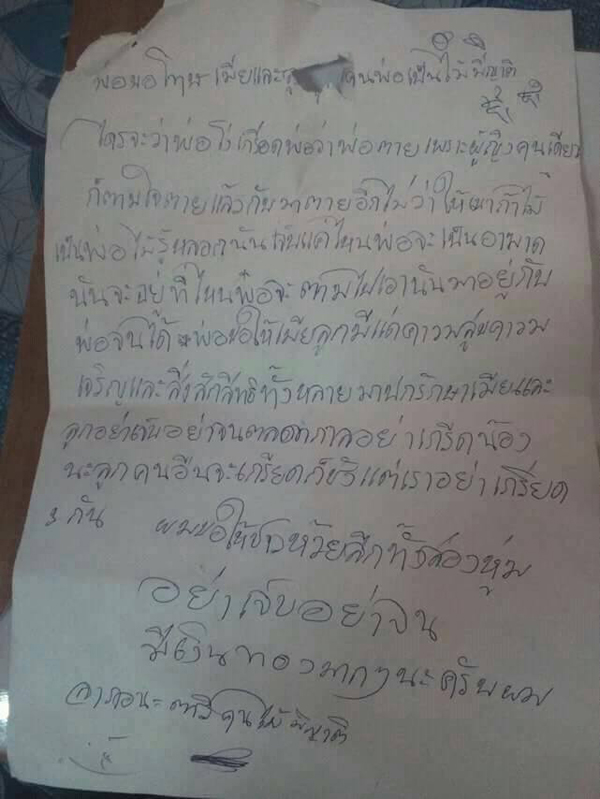 พ่อขอโทษเมียและลู คนพ่อเป็นไม้พี่ชาติ
ใครจะว่าพ่อโง่เกรียดพ่อว่าพ่อตายเพราะผู้ญิงคนเดียว
ก็ตามใจตายแล้วกับมาตายอีกไม่ว่าให้
เป็นพ่อไม่รู้หลอกนันเจ็บแค่ไหนพ่อจะเป็นอาฆาด
นันจะอยู่ที่ไหนพ่อจะตามไปเอานันมาอยู่กับ
พ่อจนได้ พ่อขอให้เมียลูกมีแต่ความสุขความ
เจริญและสิ่งสักสิทธิทั้งหลายมาปกรักษาเมียและ
ลูกอย่าเจ็บอย่าจนตลอดกาลอย่าเกรียดน้อง
นะลูกคนอื่นจะเกรียดก็ชั่งแต่เราอย่าเกรียด
กัน ผมขอให้ชาวห้วยลึกทั้งสองหุ่ม
อย่าเจ็บอย่าจน
มีเงินทองมากๆนะครับผม
คนไม้พี่ชาติ